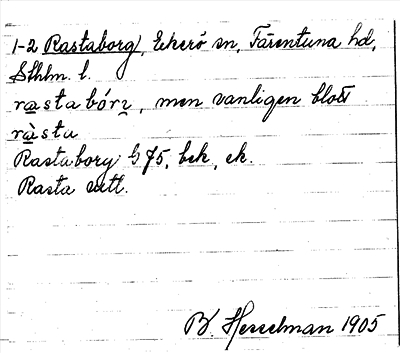 1-2 Rastaborg, Ekerö sn, Färentuna hd,
Sthlm. l.
rastabórj, men vanligen blott
ràsta
Rastaborg G 75, bek, ek.
Rasta uttl.
B. Hesselman 1905